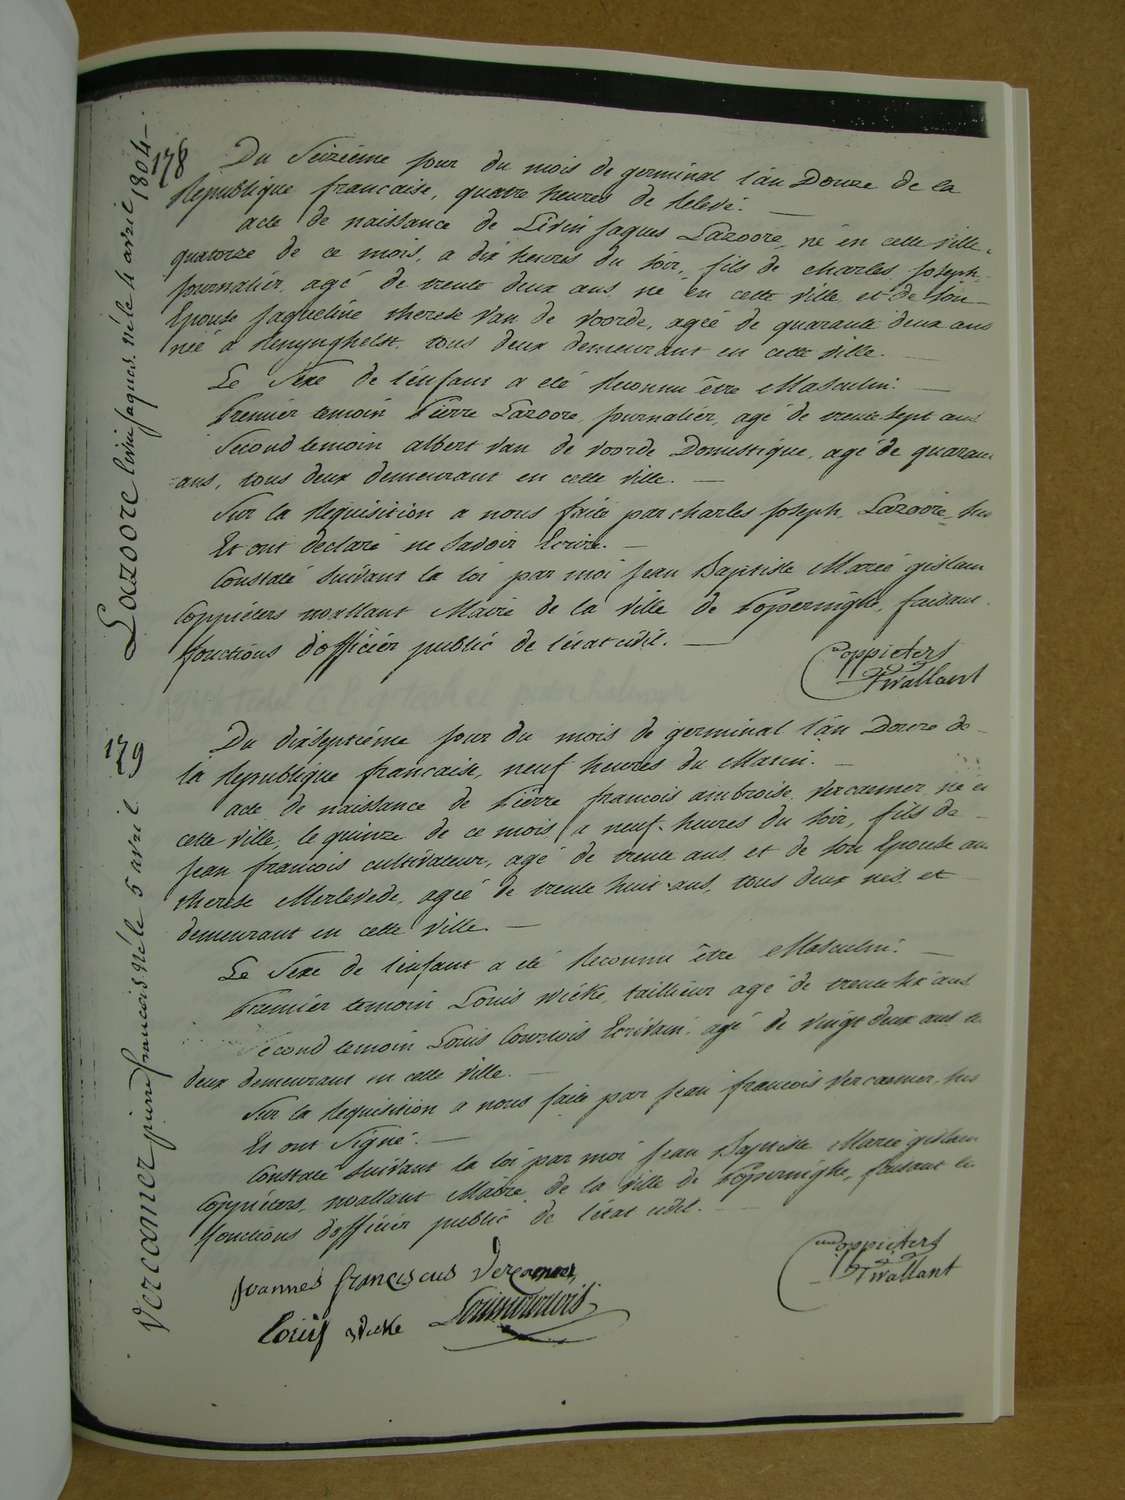 178
Lazoore livin jaques né le 4 avril 1804
Du Seizième jour du mois de germinal l'an Douze de la
Republique francaise, quatre heures de Relevé.
acte de naissance de Livin jaques Lazoore, né en cette ville,
quatorze de ce mois, a dix heures du soir, fils de charles joseph
journalier agé de trente deux ans né en cette ville et de son
Epouse jaqueline therese van de voorde, agée de quarante deux ans
née a Renynghelst, tous deux demeurant en cette ville.
Le Sexe de l'enfant a eté Reconnu être Masculin.
Premier temoin Pierre Lazoore, journalier, agé de trente sept ans
Second temoin albert van de voorde Domestique, agé de quarante
ans, tous deux demeurant en cette ville.
Sur la Requisition a nous faite par charles joseph Lazoore
Et ont declaré ne Savoir Ecrire.
Constaté Suivant la loi par moi jean Baptiste Marie gislain
Coppieters wallant Maire de la ville de Poperinghe, faisant
fonctions d'officier public de l'etat civil.
Coppieters
Twallant
179
Vercamer pierre francois né le 5 avril
Du dixseptième jour du mois de germinal l'an Douze de
la Republique francaise, neuf heures du Matin.
acte de naissance de Pierre francois ambroise vercamer, né en
cette ville, le quinze de ce mois a neuf heures du soir, fils de
jean francois cultivateur, agé de trente ans et de son Epouse
therese Merlevede, agée de trente huit ans, tous deux nés et
demeurant en cette ville.
Le Sexe de l'enfant a eté Reconnu être Masculin.
Premier temoin Louis wicke, taillieur agé de trente six ans
Second temoin Louis Courtois Ecrivain, agé de vingt deux ans
deux demeurant en cette ville.
Sur la Requisition a nous faite par jean francois vercamer
Et ont Signé.
Constaté Suivant la loi par moi jean Baptiste Marie gislain
Coppieters wallant Maire de la ville de Poperinghe, faisant les
fonctions d'officier public de l'état civil.
Joannes franciscus Vercamer
Coppieters
Twallant
Louis wicke